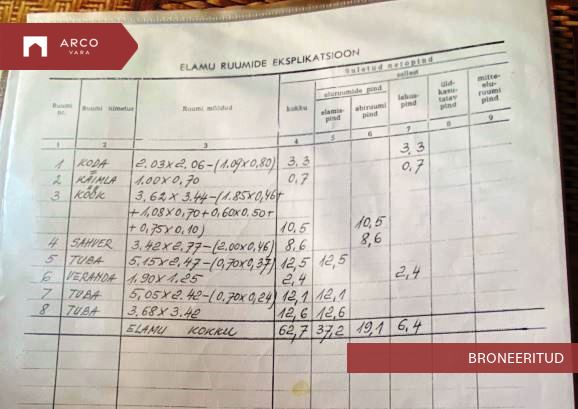 ARCO
VARA
ELAMU RUUMIDE EKSPLIKATSIOON
Suletud netopind
sellest
Ruumi nr.
Ruumi nimetus
Ruumi mõõdud
kokku
eluruumide pind
elamispind
abiruumi pind
lahuspind
üldkasutatav pind
mitteeluruumi pind
1 2 3 4 5 6 7 8 9
1 KODA 2.03×2.06-(1.09×0,80) 3,3 3,3
2 KÄIMLA 1.00×0,70 0,7 0,7
3 KÖÖK 3,62×3.44-(1.85×0,46+
+1,08×0,70+0,60×0.50+
+0,75×0,10) 10,5 10,5
4 SAHVER 3.42×2.77-(2,00×0,46) 8,6 8,6
5 TUBA 5.15×2.47-(0,70×0,37) 12,5 12,5
6 VERANDA 1,90×1.25 2,4 2,4
7 TUBA 5,05×2.42-(0,70×0,24) 12,1 12,1
8 TUBA 3,68×3.42 12,6 12,6
ELAMU KOKKU 62,7 37,2 19,1 6,4
BRONEERITUD